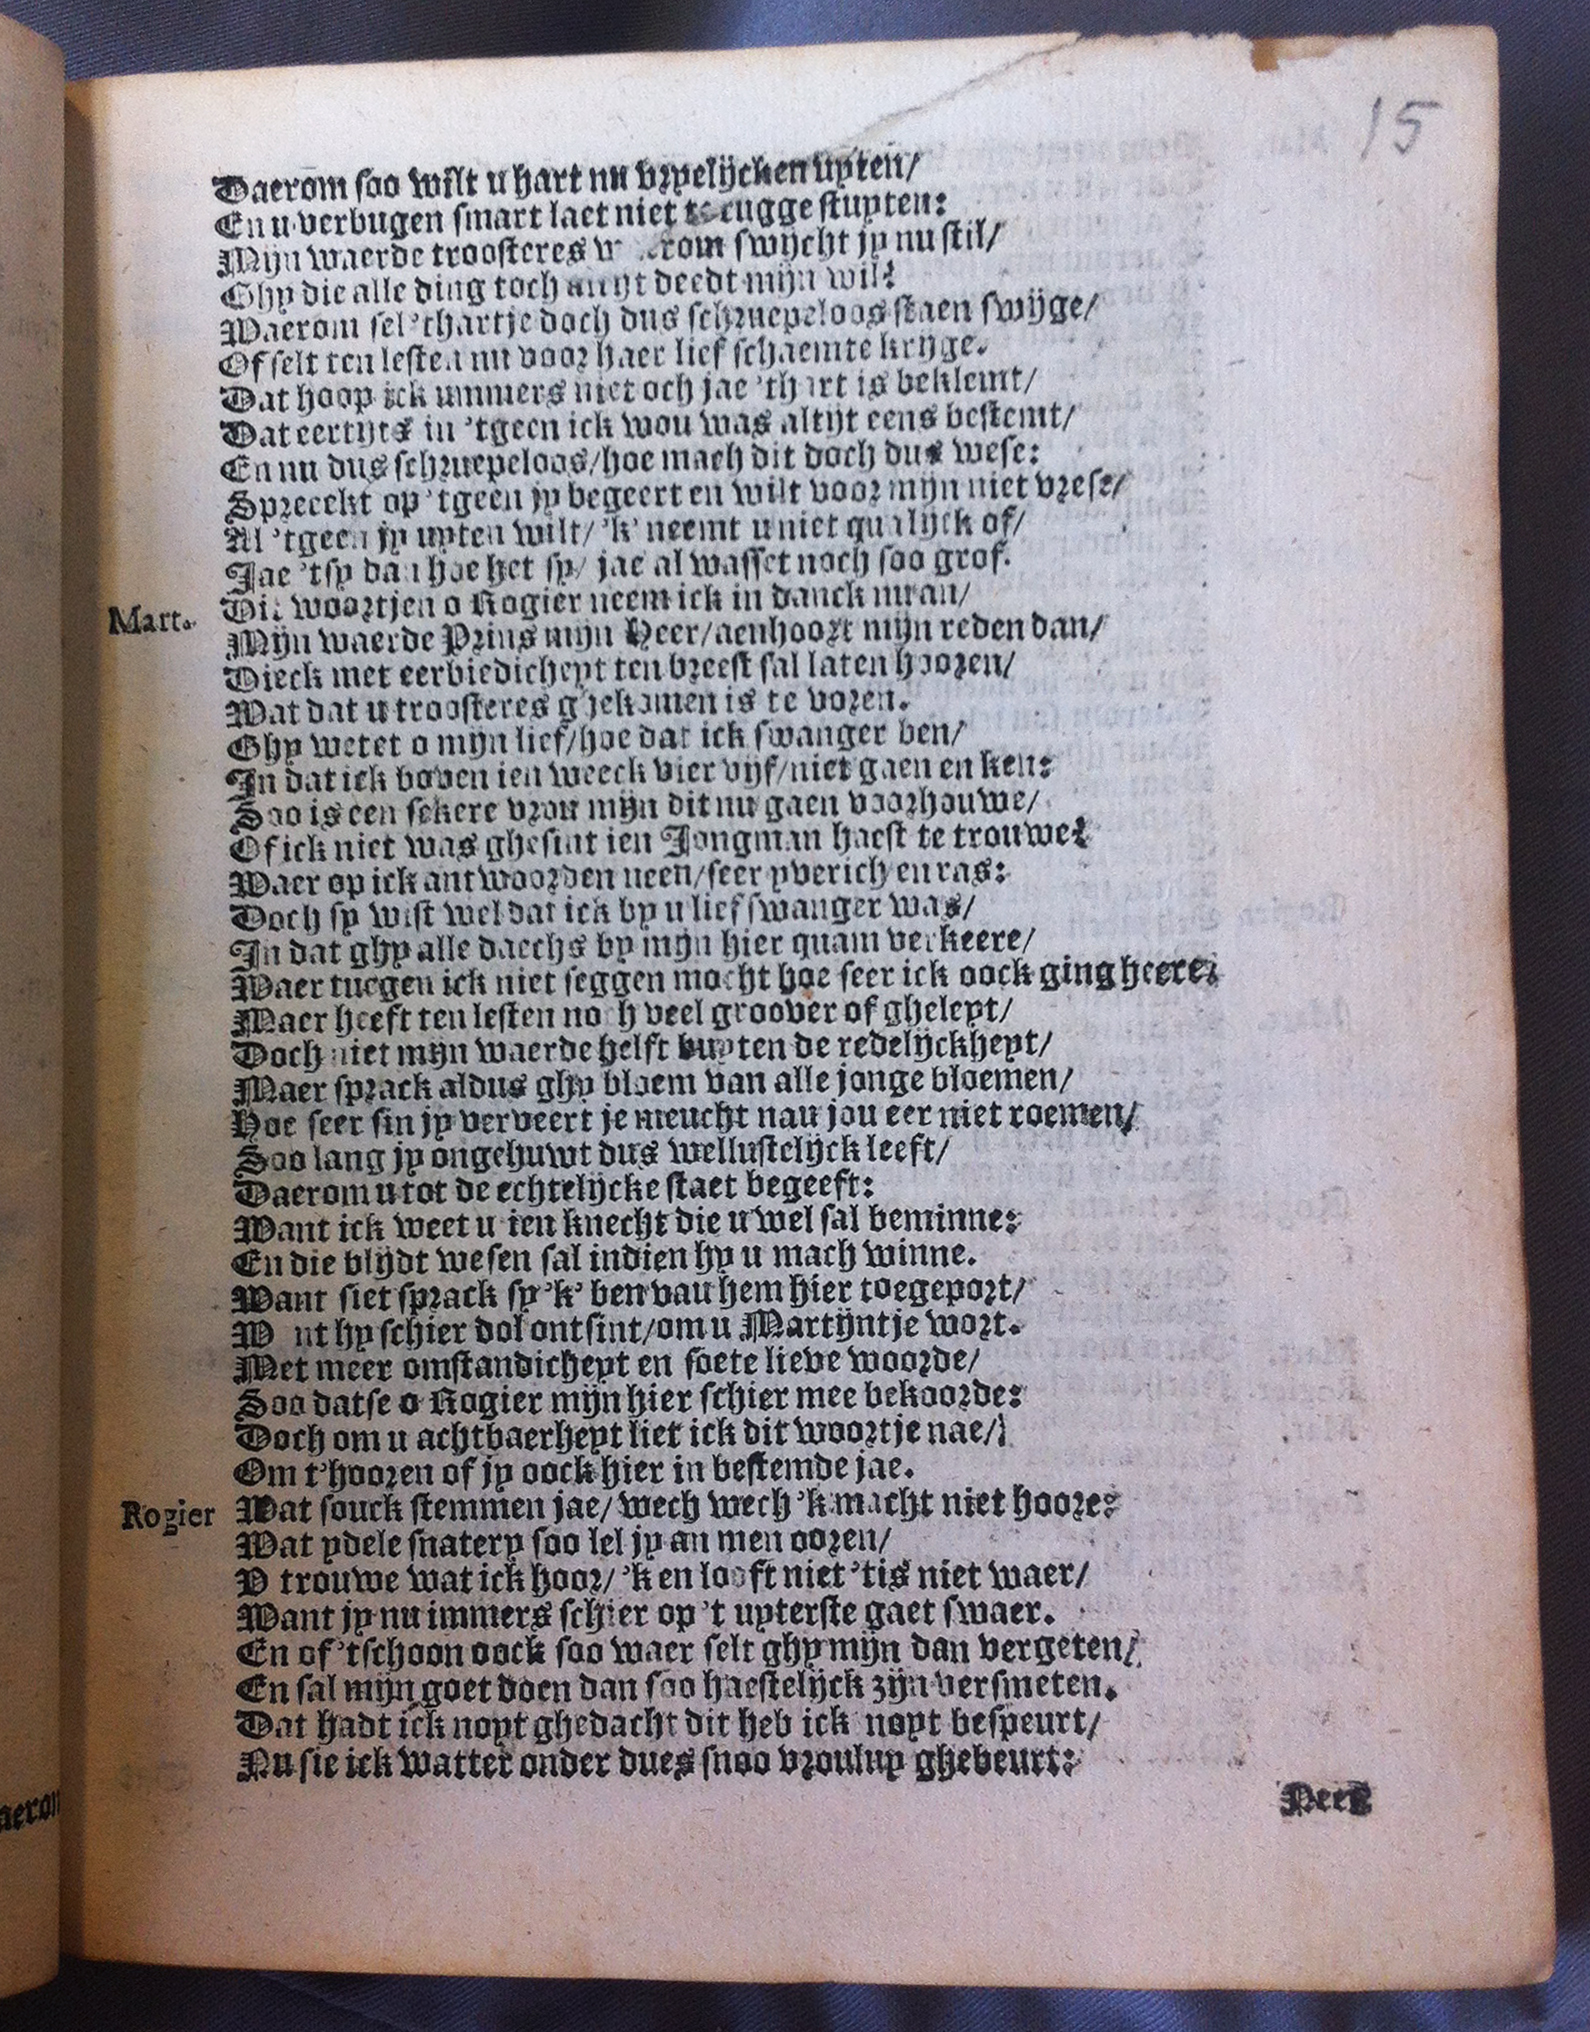 15
Daerom soo wilt u hart nu vrpelijcken upten/
En u verbugen smart laet niet te rugge stupten:
Mijn waerde troosteres swijcht jp nu stil/
Ghp die alle ding toch deedt mijn wil?
Waerom sel 'thartje doch dus schruepeloos staen swijge/
Of selt ten lesten nu voor haer lief schaemte krijge.
Dat hoop ick ummers niet och jae 'thart is beklemt/
Dat eertijts in 'tgeen ick wou was altijt eens bestemt/
En nu dus schruepeloos/hoe mach dit doch dus wese:
Spreeckt op 'tgeen jp begeert en wilt voor mijn niet vrese/
Al 'tgeen jp upten wilt/ 'k' neemt u niet qualijck of/
Jae 'tsp dan hoe het sp/ jae al wasset noch soo grof.
Mart. Dit woortjen o Rogier neem ick in danck man/
Mijn waerde Prins mijn Heer/aenhoort mijn reden dan/
Dieck met eerbiedichept ten breest sal laten hooren/
Wat dat u troosteres ghekomen is te voren.
Ghp wetet o mijn lief/hoe dat ick swanger ben/
In dat ick boven ien weeck vier vijf/niet gaen en ken:
Soo is een sekere vrou mijn dit nu gaen voorhouwe/
Of ick niet was ghesint ien Jongman haest te trouwe?
Waer op ick antwoorden neen/seer pverich en ras:
Doch sp wist wel dat ick bp u lief swanger was/
In dat ghp alle daechs bp mijn hier quam verkeere/
Waer tuegen ick niet seggen mocht hoe seer ick oock ging heere:
Maer heeft ten lesten noch veel groover of ghelept/
Doch niet mijn waerde helft bupten de redelijckhept/
Maer sprack aldus ghp bloem van alle jonge bloemen/
Hoe seer sin jp verveert je meucht nau jou eer niet roemen/
Soo lang jp ongehuwt dus wellustelijck leeft/
Daerom u tot de echtelijcke staet begeeft:
Want ick weet u ien knecht die u wel sal beminne:
En die blijdt wesen sal indien hp u mach winne.
Want siet sprack sp 'k' ben van hem hier toegeport/
W nt hp schier dol ontsint/om u Martijntje wort.
Met meer omstandichept en soete lieve woorde/
Soo datse o Rogier mijn hier schier mee bekoorde:
Doch om u achtbaerhept liet ick dit woortje nae/
Om t'hooren of jp oock hier in bestemde jae.
Rogier Wat souck stemmen jae/ wech wech 'k macht niet hoore:
Wat pdele snaterp soo lel jp an men ooren/
O trouwe wat ick hoor/ 'k en looft niet 'tis niet waer/
Want jp nu immers schier op 't upterste gaet swaer.
En of 'tschoon oock soo waer selt ghp mijn dan vergeten/
En sal mijn goet doen dan soo haestelijck zijn versmeten.
Dat hadt ick nopt ghedacht dit heb ick nopt bespeurt/
Nu sie ick watter onder dues snoo vroulup ghebeurt:
Neen
aerom